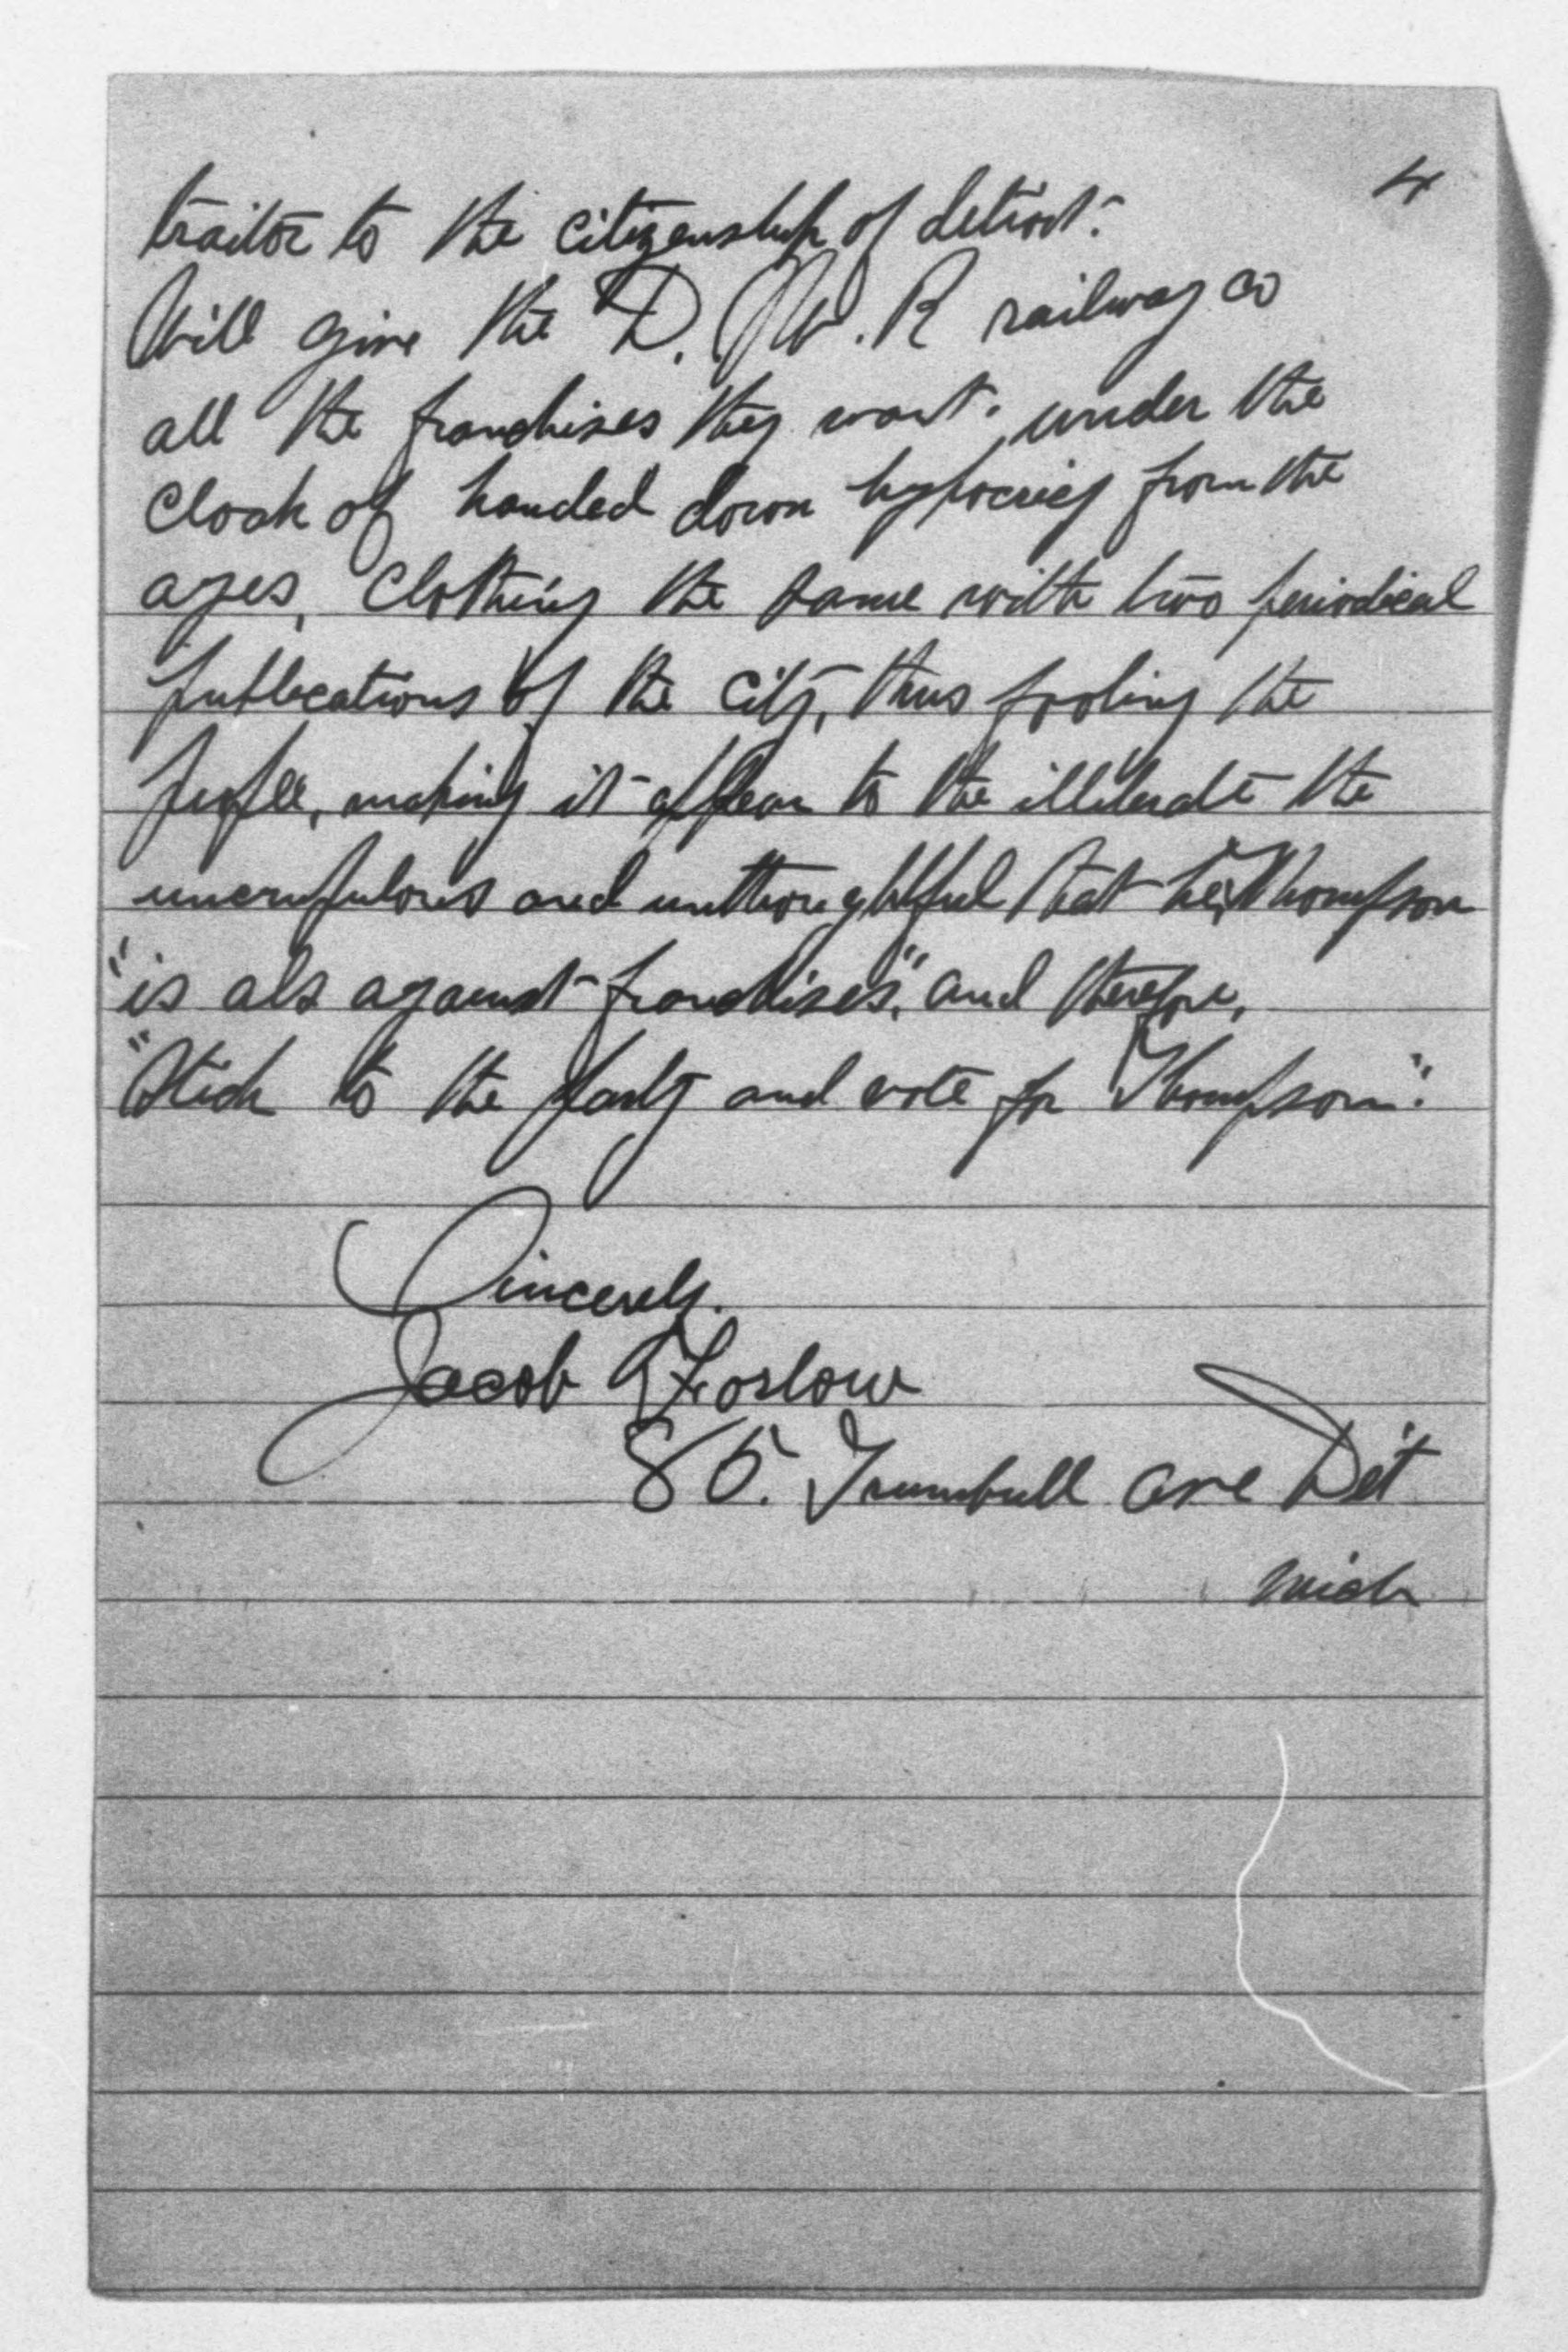 4
traitor to the citizenship of detroit.
Will give the D. W. R railway co
all the franchises they want. under the
Cloak of handed down hypocricy from the
ages, Clothing the same with two periodical
publications of the City, thus fooling the
people, making it appear to the illiterate the
uncrupulous and unthoughtful that he, Thompson
"is als against franchises," and therefore,
"Stick to the party and vote for Thompson".
Sincerely.
Jacob Foslow
85. Trumbull ave Det
Mich